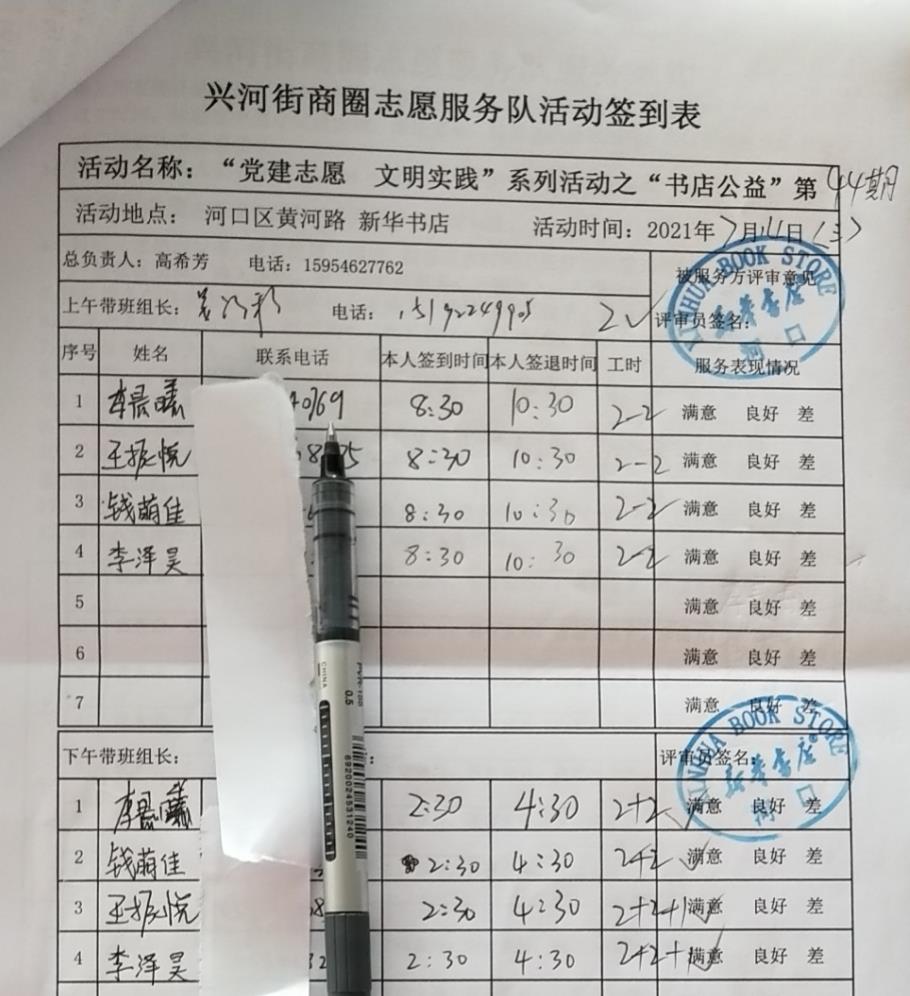 兴河街商圈志愿服务队活动签到表
活动名称：“党建志愿　文明实践”系列活动之“书店公益”第44期
活动地点： 河口区黄河路 新华书店 活动时间：2021年7月14日（三）
总负责人：高希芳 电话：15954627762 被服务方评审意见
上午带班组长： 电话： 评审员签名：
序号 姓名 联系电话 本人签到时间 本人签退时间 工时 服务表现情况
1 李晨曦 8:30 10:30 2-2 满意 良好 差
2 王振悦 8:30 10:30 2-2 满意 良好 差
3 钱萌佳 8:30 10:30 2-2 满意 良好 差
4 李泽昊 8:30 10:30 2-2 满意 良好 差
5 满意 良好 差
6 满意 良好 差
7 满意 良好 差
XINHUA BOOK STORE
新华书店
河口
下午带班组长： ： 评审员签名：
1 李晨曦 2:30 4:30 2+2 满意 良好 差
2 钱萌佳 2:30 4:30 2+2 满意 良好 差
3 王振悦 2:30 4:30 2+2+1 满意 良好 差
4 李泽昊 2:30 4:30 2+2+1 满意 良好 差
XINHUA BOOK STORE
新华书店
河口
CHINA
0.5
6920024531240